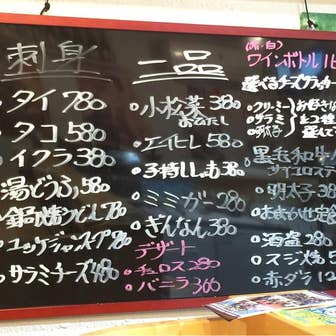 刺身
・タイ 780
・タコ 580
・イクラ 380
・湯どうふ 580
・鍋焼うどん 780
・ユッケジャンスープ 780
・サラミチーズ 480
一品
・小松菜 380
おひたし
・エイヒレ 580
・子持ししゃも 380
・ミミガー 280
・ぎんなん 380
デザート
・チュロス 280
・バニラ 300
(赤・白)
ワインボトル
選べるチーズ
・クリーミー
・サラミ
・明太子
・黒毛和牛
サイコロステ
・明太子
・おまかせ
・酒盗 28
・スジ焼 5
・赤ダラ